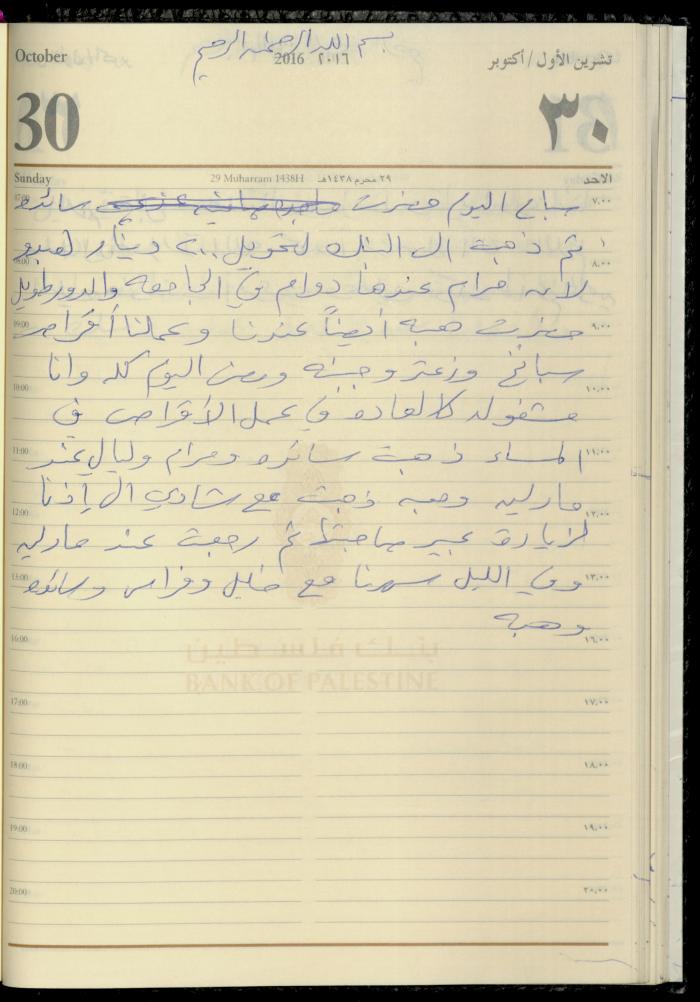 بسم الله الرحمن الرحيم
October 2016 ٢٠١٦ تشرين الأول / أكتوبر
30 ٣٠
Sunday 29 Muharram 1438H ٢٩ محرم ١٤٣٨هـ الأحد
07:00 ٧,٠٠
صباح اليوم حضرت سائده
ثم ذهبت الى البنك لتحويل ٢٠٠ دينار لهبه
08:00 ٨,٠٠
لان مرام عندها دوام في الجامعه والدور طويل
09:00 ٩,٠٠
حضرت هبه أيضاً عندنا وعملنا أقراص
سبانخ وزعتر وجبنه ومضى اليوم كله وانا
10:00 ١٠,٠٠
مشغوله كالعاده في عمل الأقراص في
11:00 ١١,٠٠
المساء ذهبت سائده ومرام وليال عند
مارلين وهبه ذهبت مع شادي الى إذنا
12:00 ١٢,٠٠
لزيارة عبير صاحبتها ثم رجعت عند مارلين
13:00 ١٣,٠٠
وفي الليل سهرنا مع خليل وفراس وسائده
وهبه
16:00 ١٦,٠٠
بنك فلسطين
BANK OF PALESTINE
17:00 ١٧,٠٠
18:00 ١٨,٠٠
19:00 ١٩,٠٠
20:00 ٢٠,٠٠